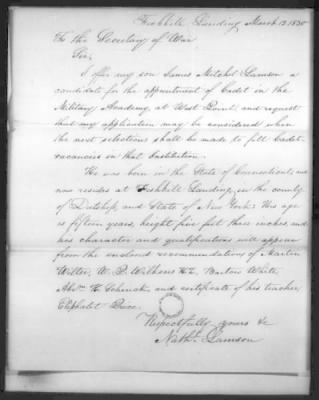 Fishkill Landing March 13 1830
To the Secretary of War
Sir,
I offer my son James Mitchel Lamson a
candidate for the appointment of Cadet in the
Military Academy, at West Point, and request
that my application may be considered when
the next selections shall be made to fill Cadet
vacancies in that Institution.
He was born in the State of Connecticut, and
now resides at Fishkill Landing, in the county
of Dutchess, and State of New York. His age
is fifteen years, height five feet three inches, and
his character and qualifications will appear
from the enclosed recommendations of Martin
Wiltse, W. P. Wilhouse Bartow White
Abrm. H. Schenck and certificate of his teacher,
Eliphalet Price.
Respectfully yours &c
Nathl. Lamson